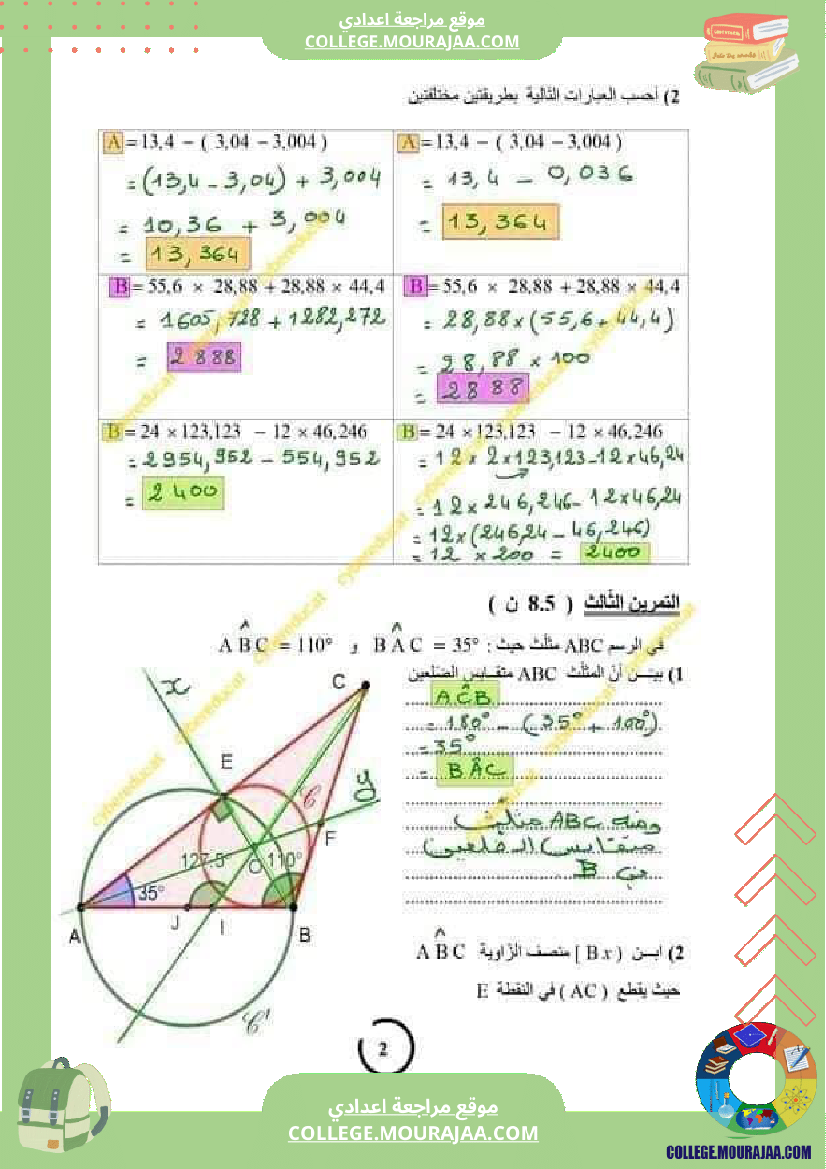 موقع مراجعة اعدادي
COLLEGE.MOURAJAA.COM
2) أحسب العبارات التالية بطريقتين مختلفتين
A = 13,4 - ( 3,04 - 3,004 )
= (13,4 - 3,04) + 3,004
= 10,36 + 3,004
= 13,364
A = 13,4 - ( 3,04 - 3,004 )
= 13,4 - 0,036
= 13,364
B = 55,6 × 28,88 + 28,88 × 44,4
= 1605,728 + 1282,272
= 2888
B = 55,6 × 28,88 + 28,88 × 44,4
= 28,88 × (55,6 + 44,4)
= 28,88 × 100
= 2888
B = 24 × 123,123 - 12 × 46,246
= 2954,952 - 554,952
= 2400
B = 24 × 123,123 - 12 × 46,246
= 12 × 2 × 123,123 - 12 × 46,24
= 12 × 246,246 - 12 × 46,24
= 12 × (246,24 - 46,246)
= 12 × 200 = 2400
التمرين الثالث ( 8.5 ن )
في الرسم ABC مثلث حيث : BÂC = 35° و AB̂C = 110°
1) بيـــن أن المثلث ABC متقـايس الضلعين
AĈB
= 180° - (35° + 100°)
= 35°
= BÂC
ومنه ABC مثلث
متقايس الضلعين
في B
x
C
E
y
F
127.5°
O
110°
35°
A
J
I
B
2) ابـــن [ Bx ) منصف الزاوية AB̂C
حيث يقطع ( AC ) في النقطة E
2
موقع مراجعة اعدادي
COLLEGE.MOURAJAA.COM
COLLEGE.MOURAJAA.COM